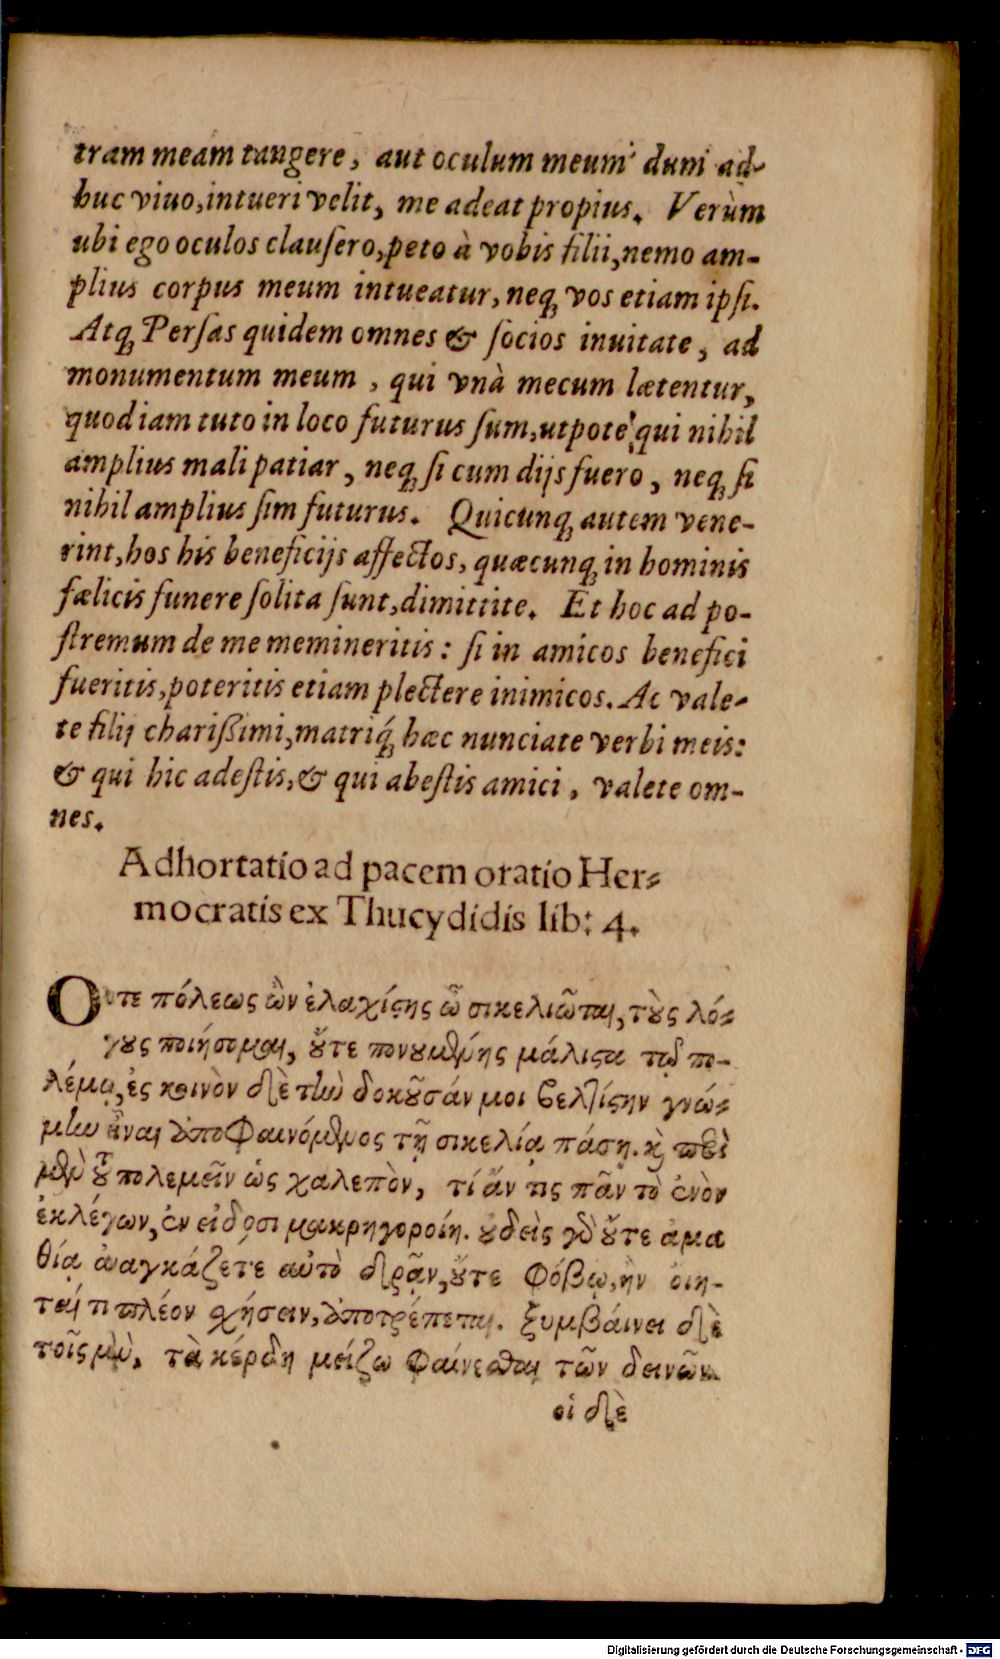 tram meam tangere, aut oculum meum dum ad-
huc viuo, intueri velit, me adeat propius. Verùm
ubi ego oculos clauſero, peto à vobis filii, nemo am-
plius corpus meum intueatur, neq; vos etiam ipſi.
Atq; Perſas quidem omnes & ſocios inuitate, ad
monumentum meum, qui vnà mecum lætentur,
quod iam tuto in loco futurus ſum, utpote qui nihil
amplius mali patiar, neq; ſi cum dijs fuero, neq; ſi
nihil amplius ſim futurus. Quicunq; autem vene-
rint, hos his beneficijs affectos, quæcunq; in hominis
fælicis funere ſolita ſunt, dimittite. Et hoc ad po-
ſtremum de me memineritis: ſi in amicos benefici
fueritis, poteritis etiam plectere inimicos. Ac vale-
te filij chariſsimi, matriq́; hæc nunciate verbi meis:
& qui hic adeſtis, & qui abeſtis amici, valete om-
nes.
Adhortatio ad pacem oratio Her-
mocratis ex Thucydidis lib: 4.
Οὔτε πόλεως ὢν ἐλαχίστης ὦ σικελιῶται, τοὺς λό-
γους ποιήσομαι, οὔτε πονουμένης μάλιστα τῷ πο-
λέμῳ, ἐς κοινὸν δὲ τὴν δοκοῦσάν μοι βελτίστην γνώ-
μην εἶναι ἀποφαινόμενος τῇ σικελίᾳ πάσῃ. καὶ περὶ
μὲν τοῦ πολεμεῖν ὡς χαλεπὸν, τί ἄν τις πᾶν τὸ ἐνὸν
ἐκλέγων, ἐν εἰδόσι μακρηγοροίη. οὐδεὶς γὰρ οὔτε ἀμα
θίᾳ ἀναγκάζετε αὐτὸ δρᾶν, οὔτε φόβῳ, ἢν οἴη-
ταί τι πλέον σχήσειν, ἀποτρέπεται. ξυμβάινει δὲ
τοῖς μὲν, τὰ κέρδη μείζω φαίνεσθαι τῶν δεινῶν.
οἱ δὲ
Digitalisierung gefördert durch die Deutsche Forschungsgemeinschaft - DFG